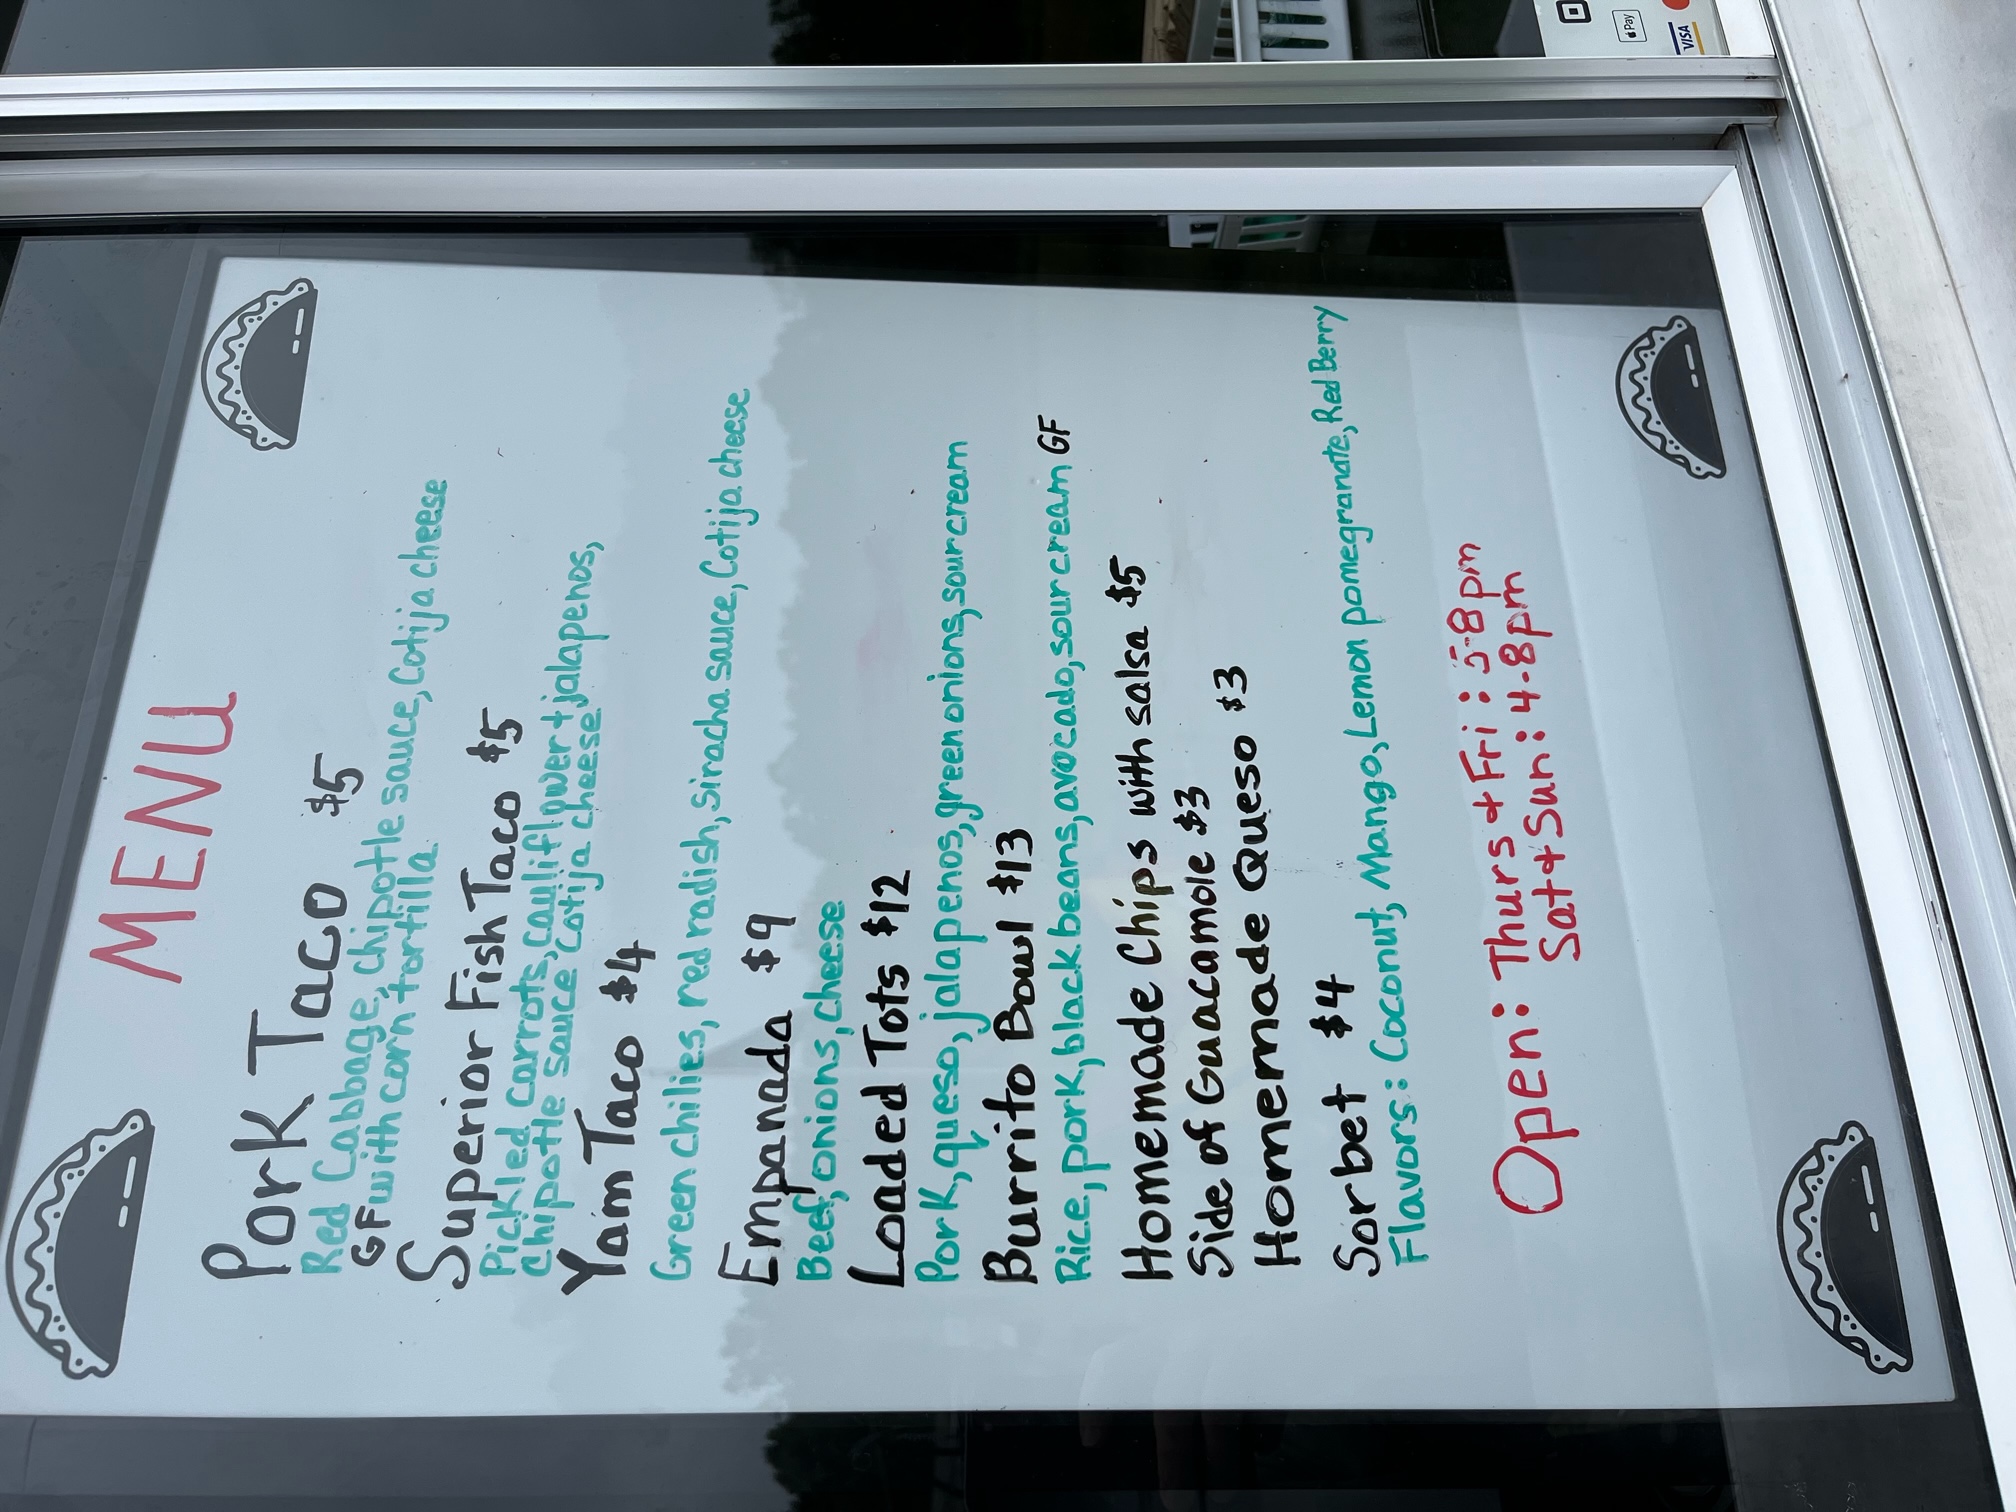 MENU
Pork Taco $5
Red Cabbage, chipotle sauce, Cotija cheese
GF with corn tortilla
Superior Fish Taco $5
Pickled carrots, cauliflower + jalapenos,
chipotle sauce cotija cheese
Yam Taco $4
Green chilies, red radish, siracha sauce, Cotija cheese
Empanada $9
Beef, onions, cheese
Loaded Tots $12
Pork, queso, jalapenos, green onions, sour cream
Burrito Bowl $13
Rice, pork, black beans, avocado, sour cream GF
Homemade Chips with salsa $5
Side of Guacamole $3
Homemade Queso $3
Sorbet $4
Flavors: Coconut, Mango, Lemon pomegranate, Red Berry
Open: Thurs + Fri: 5-8pm
Sat + Sun: 4-8pm
Pay
VISA